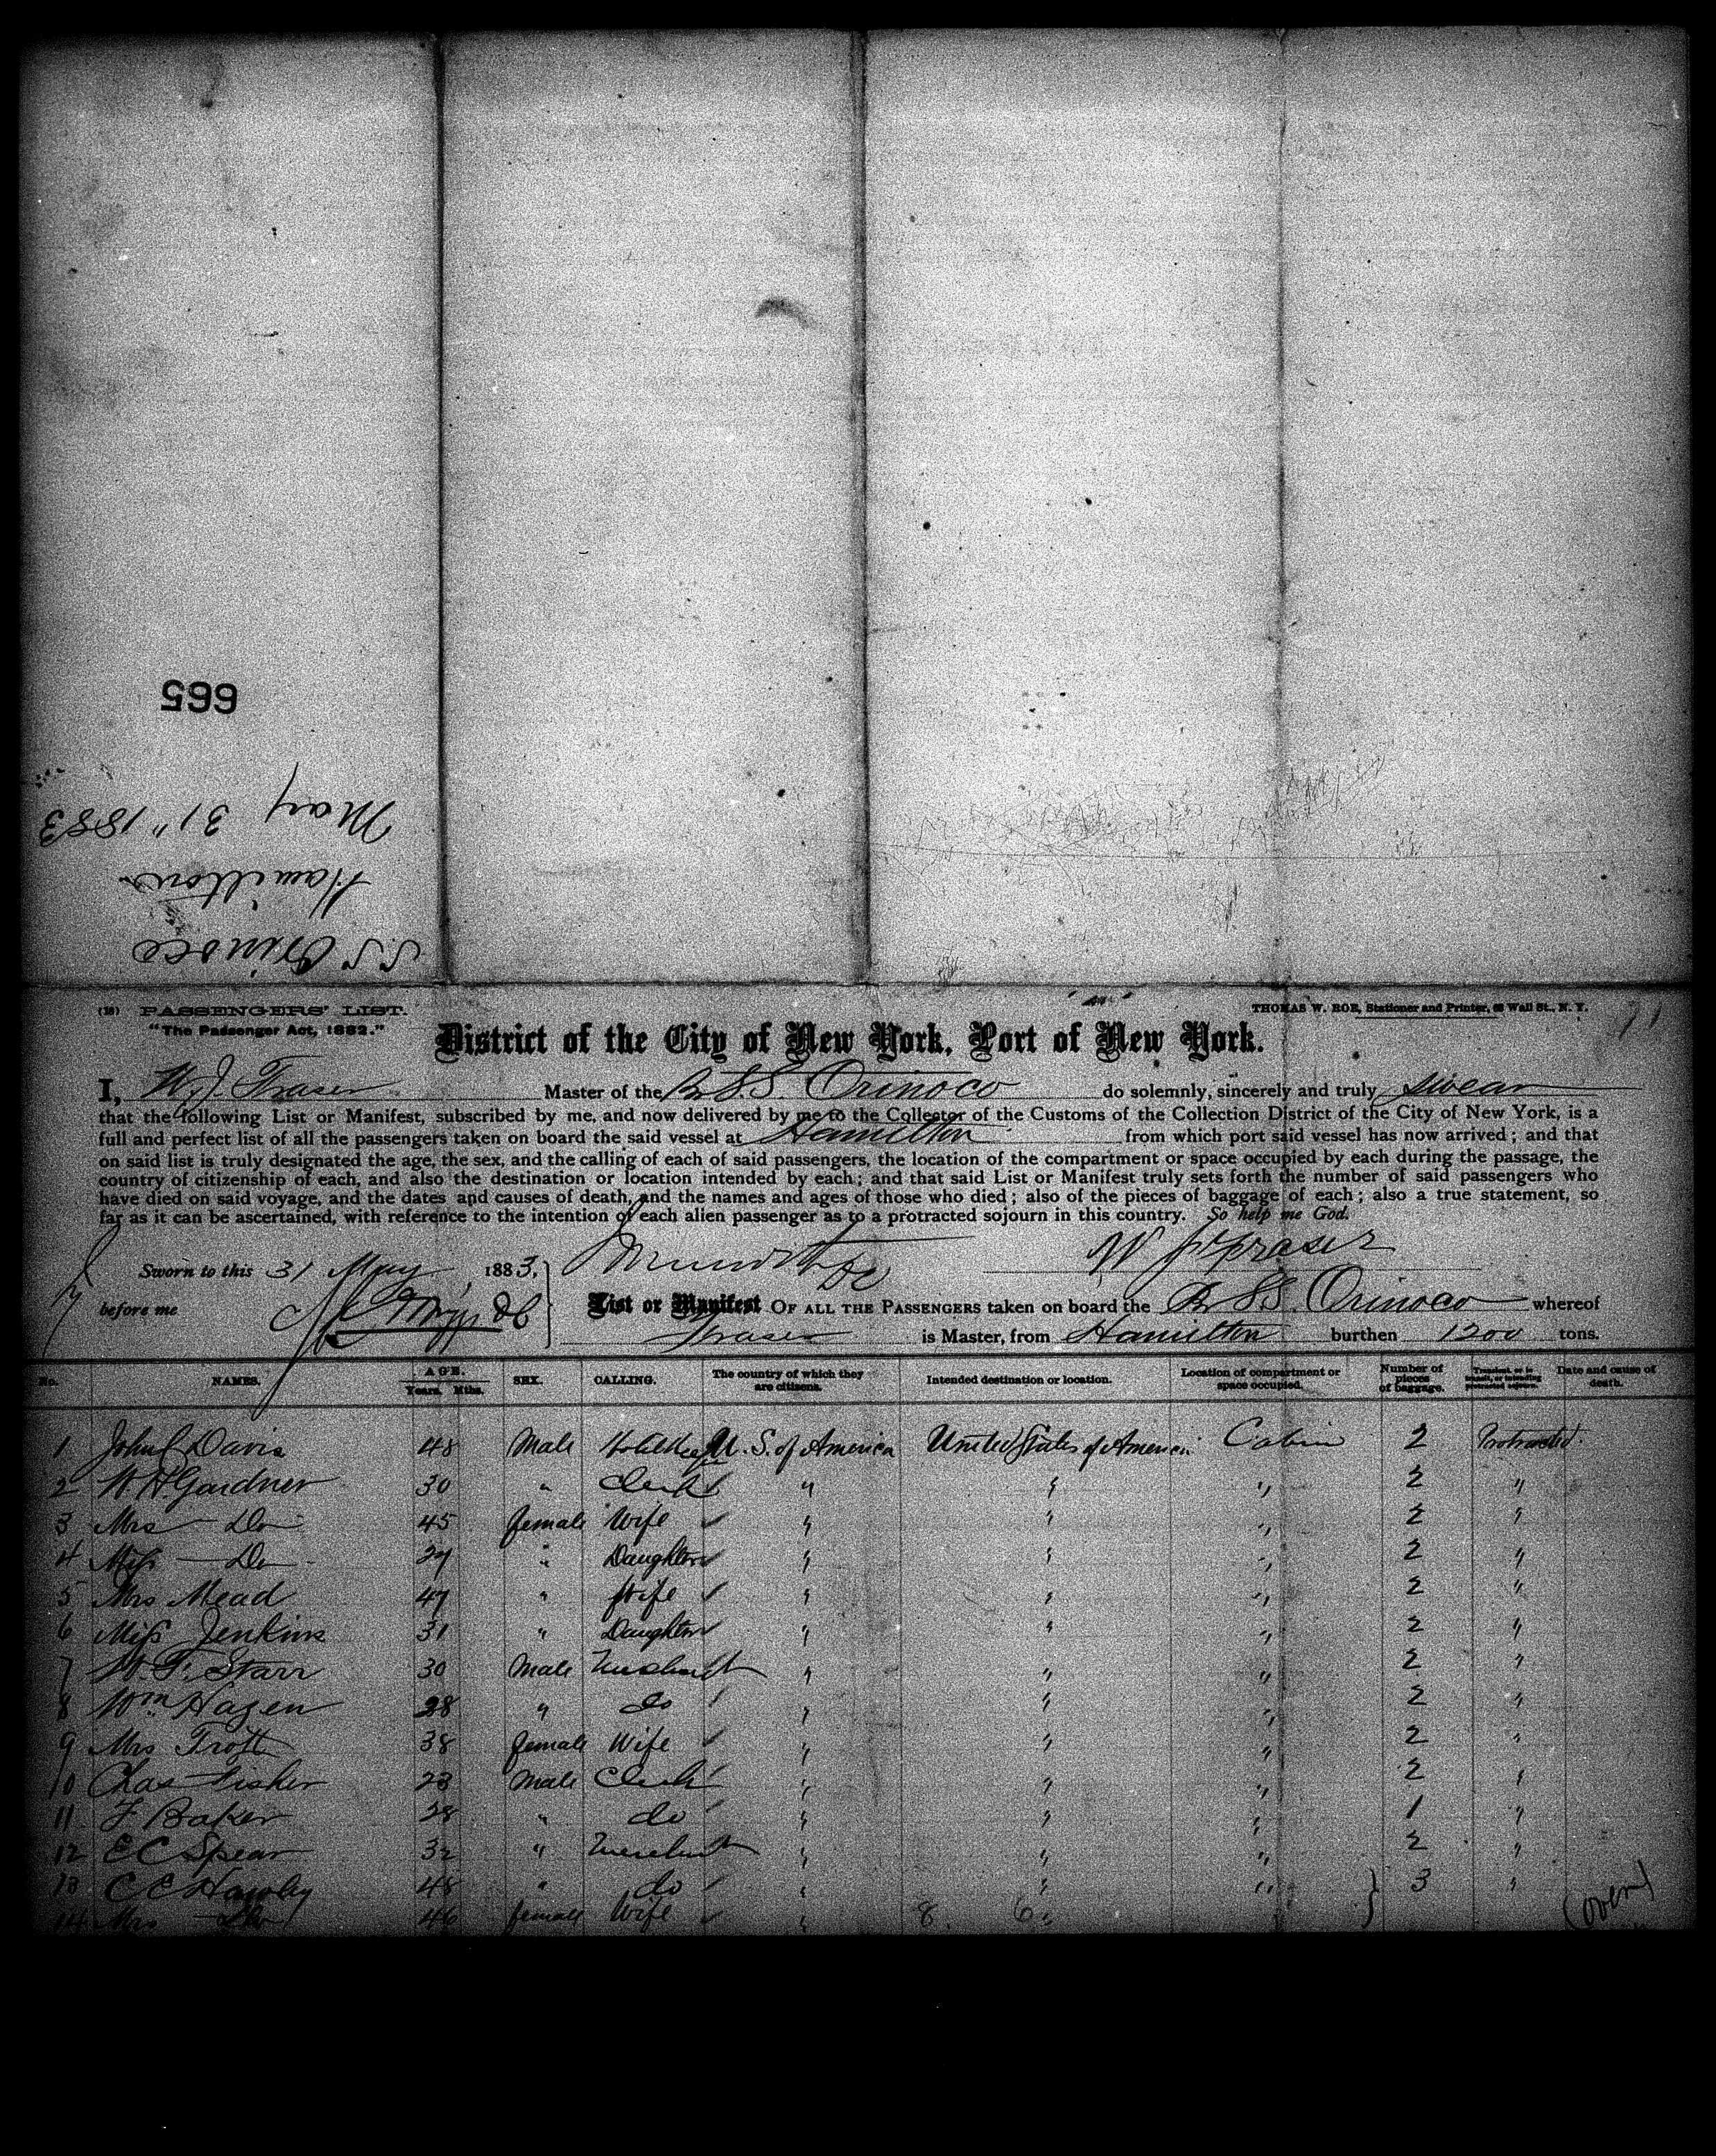 665
May 31" 1883
Hamilton
S.S. Orinoco
(18) PASSENGERS' LIST.
THOMAS W. ROE, Stationer and Printer, 62 Wall St., N. Y.
"The Passenger Act, 1882."
District of the City of New York, Port of New York.
I, W. J. Fraser Master of the Br S.S. Orinoco do solemnly, sincerely and truly swear
that the following List or Manifest, subscribed by me, and now delivered by me to the Collector of the Customs of the Collection District of the City of New York, is a
full and perfect list of all the passengers taken on board the said vessel at Hamilton from which port said vessel has now arrived; and that
on said list is truly designated the age, the sex, and the calling of each of said passengers, the location of the compartment or space occupied by each during the passage, the
country of citizenship of each, and also the destination or location intended by each; and that said List or Manifest truly sets forth the number of said passengers who
have died on said voyage, and the dates and causes of death, and the names and ages of those who died; also of the pieces of baggage of each; also a true statement, so
far as it can be ascertained, with reference to the intention of each alien passenger as to a protracted sojourn in this country. So help me God.
W J Fraser
Sworn to this 31 May, 1883,
before me
List or Manifest OF ALL THE PASSENGERS taken on board the Br S.S. Orinoco whereof
Fraser is Master, from Hamilton burthen 1200 tons.
No. NAMES. AGE. Years. Mths. SEX. CALLING. The country of which they are citizens. Intended destination or location. Location of compartment or space occupied. Number of pieces of baggage. Transient, or in transit, or intending protracted sojourn. Date and cause of death.
1 John C Davis 48 Male U. S. of America United States of America Cabin 2 Protracted
2 W H Gardner 30 " Clerk " " " 2 "
3 Mrs Do 45 female Wife " " " 2 "
4 Miss Do 27 " Daughter " " " 2 "
5 Mrs Mead 47 " Wife " " " 2 "
6 Miss Jenkins 31 " Daughter " " " 2 "
7 W. F. Starr 30 Male Merchant " " " 2 "
8 Wm. Hazen 28 " do " " " 2 "
9 Mrs Trott 38 female Wife " " " 2 "
10 Chas Fisher 23 Male Clerk " " " 2 "
11 F Baker 28 " do " " " 1 "
12 E C Spear 32 " Merchant " " " 2 "
13 C E Hawley 48 " do " " " 3 "
14 Mrs Do 46 female Wife " 8. 6.
(over)